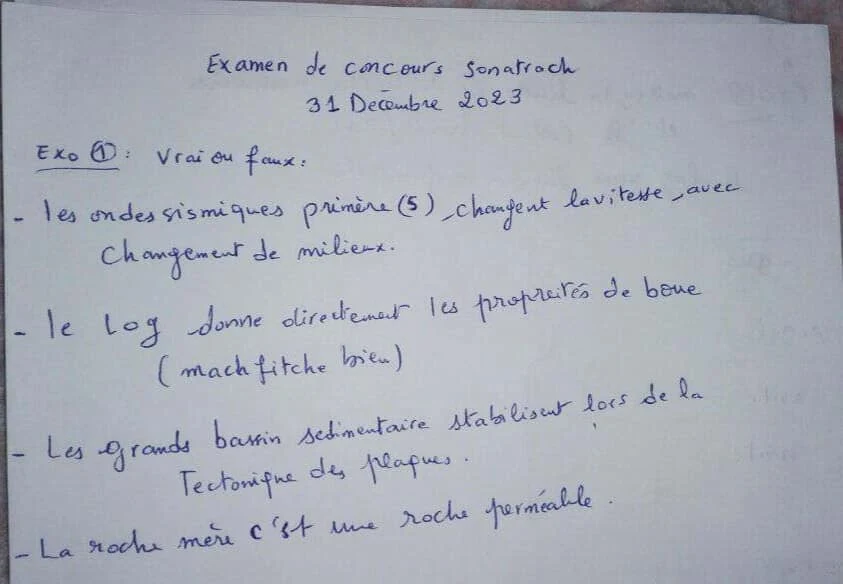 Examen de concours Sonatrach
31 Décembre 2023
Exo ①: Vrai ou faux:
- les ondes sismiques primère (S) changent la vitesse avec
Changement de milieux.
- le Log donne directement les propreités de boue
(machfitche bien)
- Les grands bassin sedimentaire stabilisent lors de la
Tectonique des plaques.
- La roche mère c'st une roche perméable.